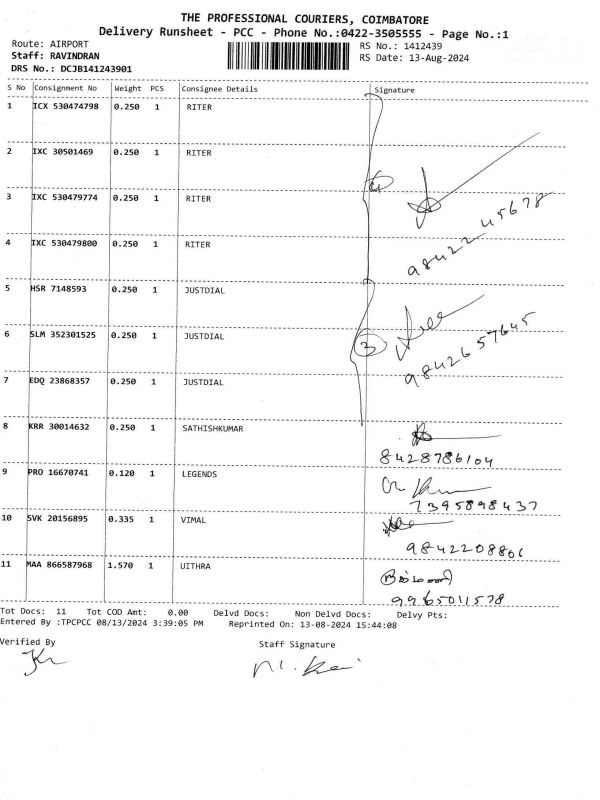 THE PROFESSIONAL COURIERS, COIMBATORE
Delivery Runsheet - PCC - Phone No.:0422-3505555 - Page No.:1
Route: AIRPORT RS No.: 1412439
Staff: RAVINDRAN RS Date: 13-Aug-2024
DRS No.: DCJB141243901
S No Consignment No Weight PCS Consignee Details Signature
1 ICX 530474798 0.250 1 RITER
2 IXC 30501469 0.250 1 RITER
4
3 IXC 530479774 0.250 1 RITER
98422 45678
4 IXC 530479800 0.250 1 RITER
5 HSR 7148593 0.250 1 JUSTDIAL
6 SLM 352301525 0.250 1 JUSTDIAL
3
9842657645
7 EDQ 23868357 0.250 1 JUSTDIAL
8 KRR 30014632 0.250 1 SATHISHKUMAR
8428786104
9 PRO 16670741 0.120 1 LEGENDS
7395898437
10 SVK 20156895 0.335 1 VIMAL
9842208806
11 MAA 866587968 1.570 1 UITHRA
9965011578
Tot Docs: 11 Tot COD Amt: 0.00 Delvd Docs: Non Delvd Docs: Delvy Pts:
Entered By :TPCPCC 08/13/2024 3:39:05 PM Reprinted On: 13-08-2024 15:44:08
Verified By Staff Signature